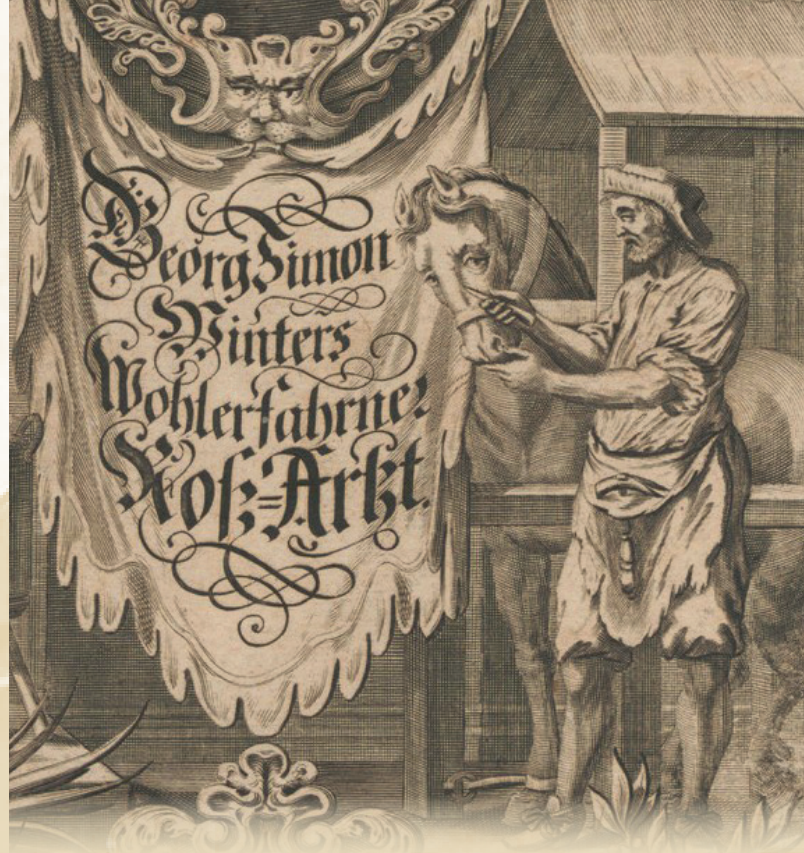 Georg Simon
Winters
Wohlerfahrner
Roß=Artzt.